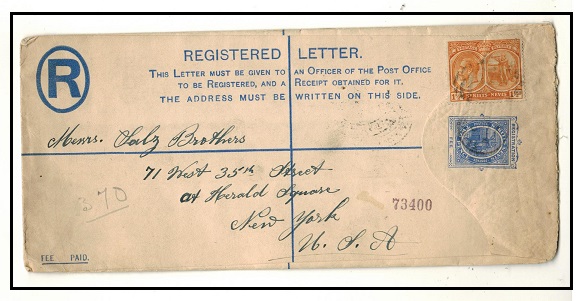 REGISTERED LETTER.
THIS LETTER MUST BE GIVEN TO AN OFFICER OF THE POST OFFICE
TO BE REGISTERED, AND A RECEIPT OBTAINED FOR IT.
THE ADDRESS MUST BE WRITTEN ON THIS SIDE.
R
ST KITTS-NEVIS
Messrs. Salz Brothers
71 West 35th Street
at Herald Square
New York
U. S. A
70
73400
FEE PAID.
REGISTRATION